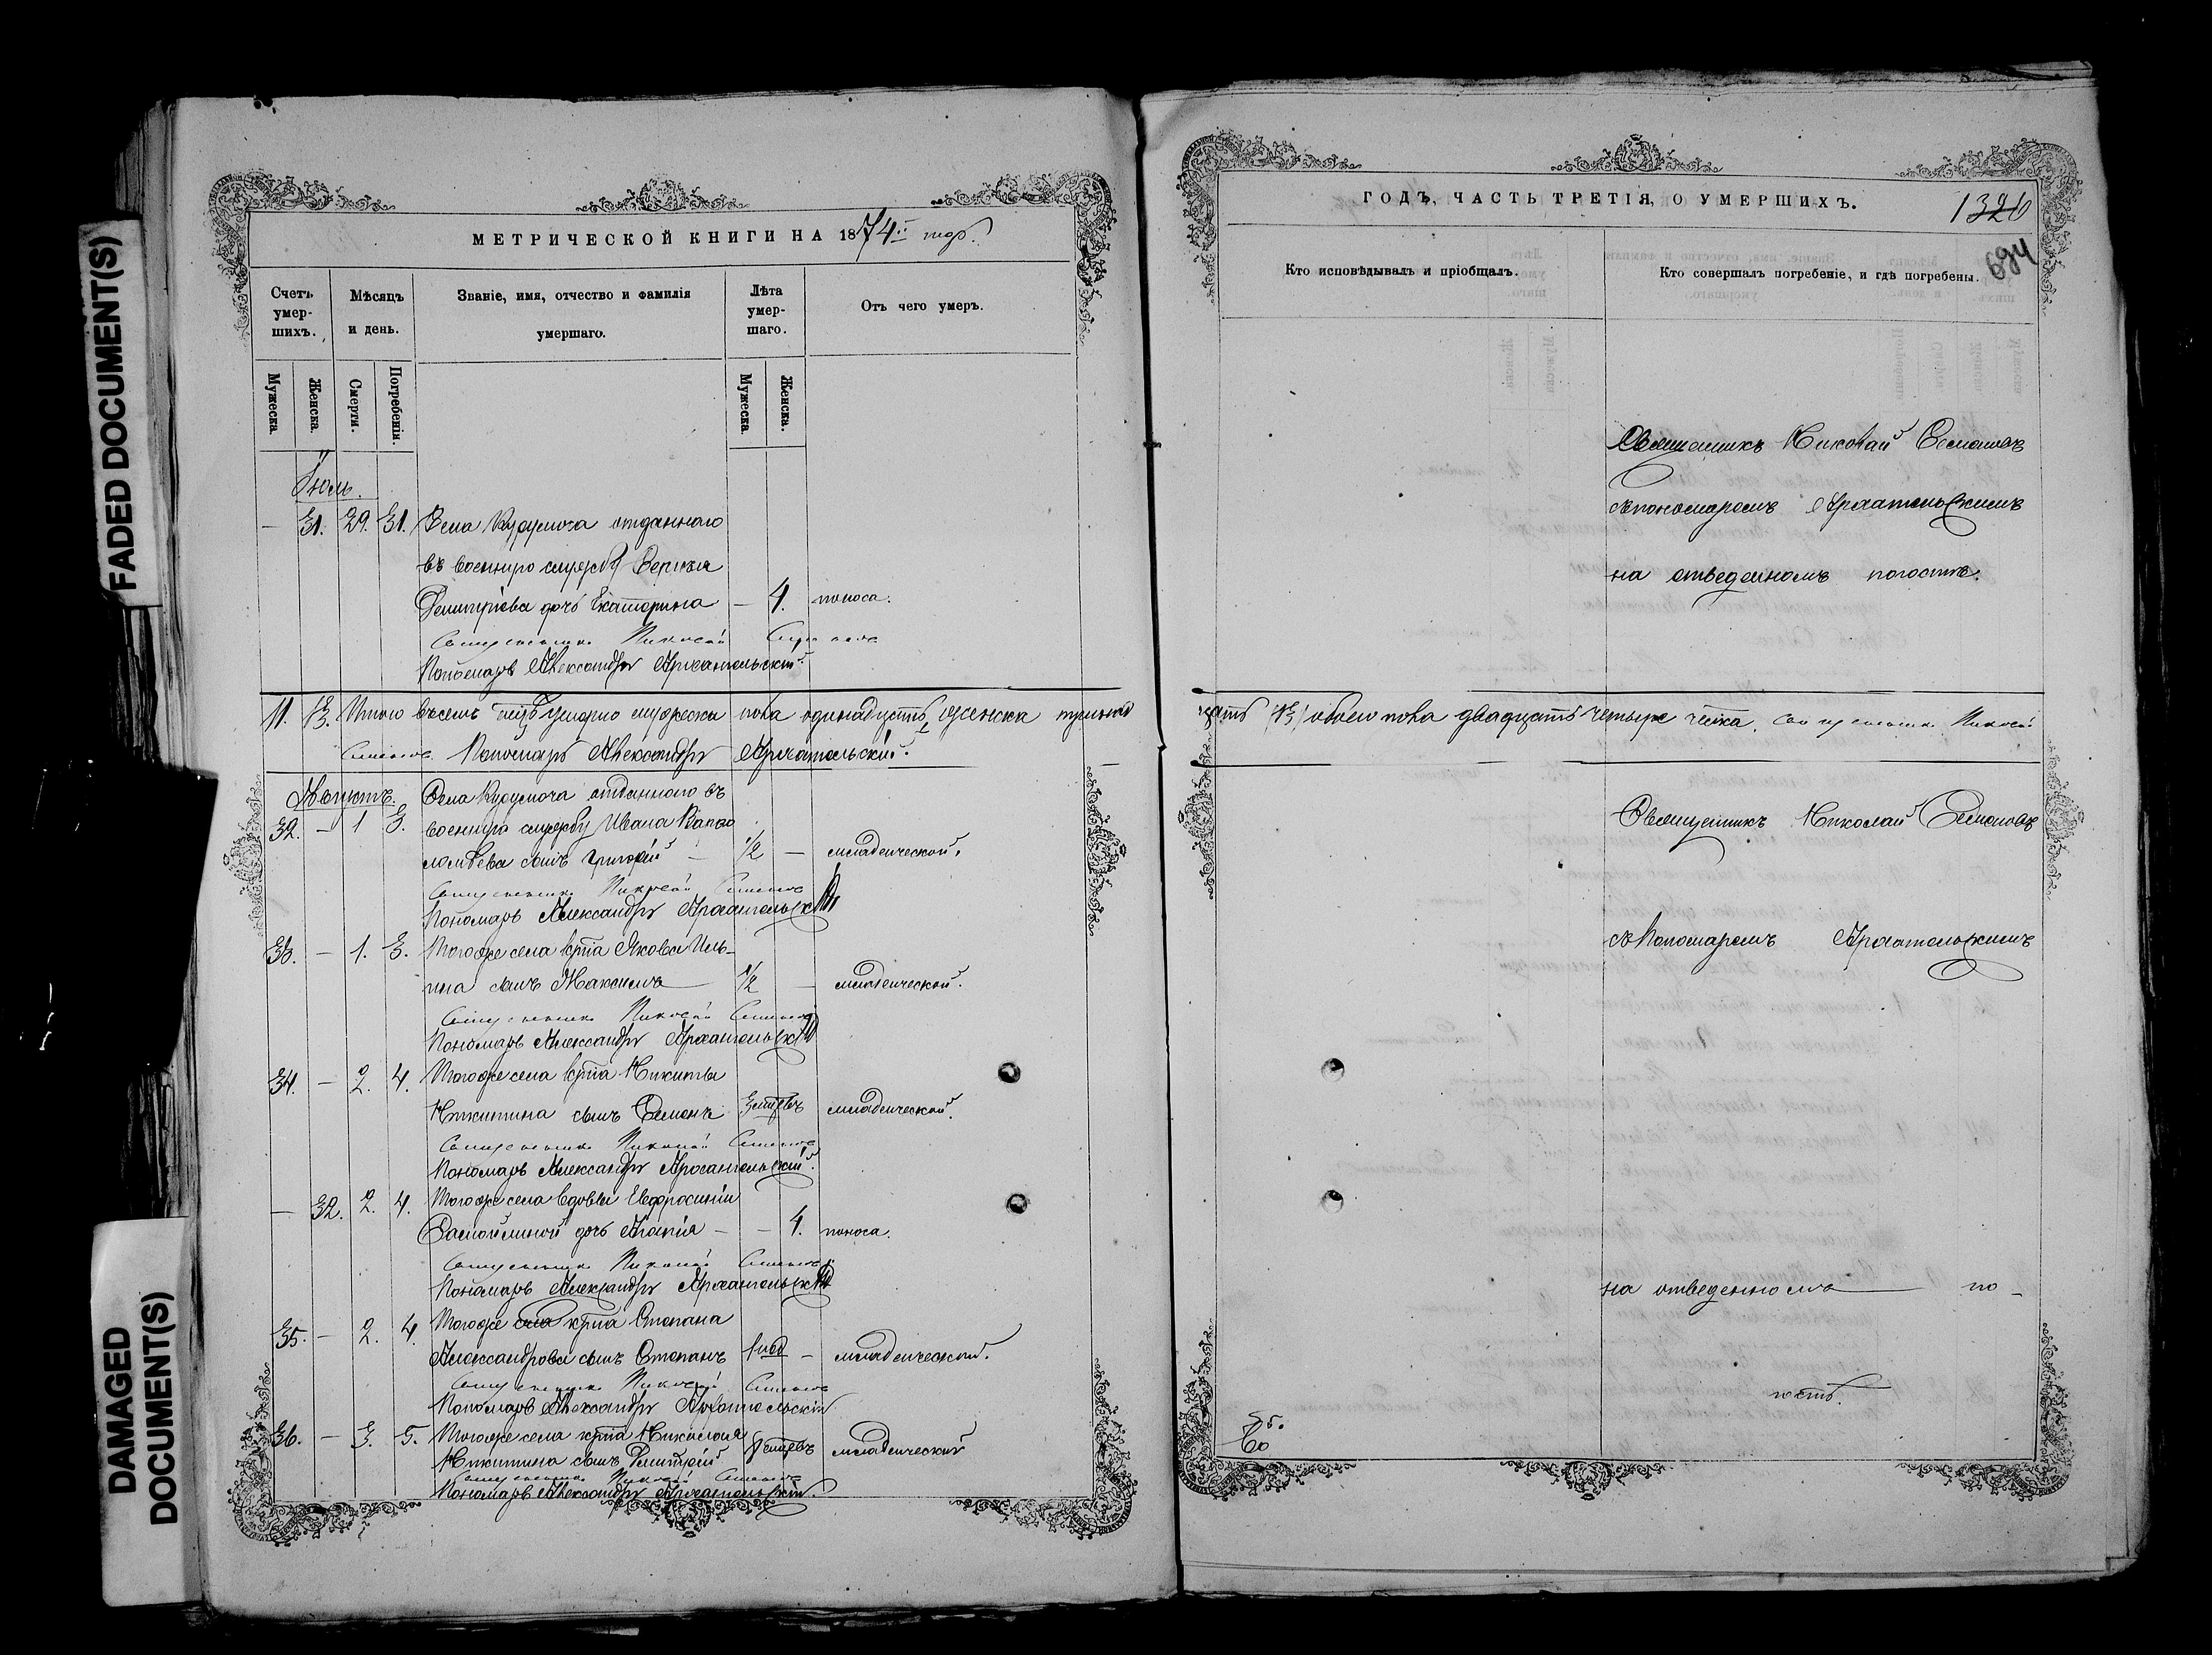 FADED DOCUMENT(S)
DAMAGED
DOCUMENT(S)
МЕТРИЧЕСКОЙ КНИГИ НА 1874й годъ.
Счетъ умер-шихъ.
Мѣсяцъ и день.
Званіе, имя, отчество и фамилія умершаго.
Лѣта умер-шаго.
Отъ чего умеръ.
Мужеска.
Женска.
Смерти.
Погребенія.
Мужеска.
Женска.
Іюль.
— 31. 29. 31. Села Курумоча отданнаго
въ военную службу Сергѣя
Димитріева дочь Екатерина — 4. поноса.
Священникъ Николай
Пономарь Александръ Архангельскій.
11. 13. Итого въ семъ умерло мужеска пола одинадцать, женска тринад
Семеновъ. Пономарь Александръ Архангельскій.
Августъ. Села Курумоча отданнаго въ
32. — 1 3. военную службу Ивана
сынъ Григорій — 1/2 — младенческой.
Священникъ Николай Семеновъ
Пономарь Александръ Архангельскій
33. — 1. 3. Тогоже села крта Якова Иль-
ина сынъ Максимъ 1/2 — младенческой.
Священникъ Николай Семеновъ
Пономарь Александръ Архангельскій
34. — 2. 4. Тогоже села крта Никиты
Никитина сынъ Семенъ младенческой.
Священникъ Николай Семеновъ
Пономарь Александръ Архангельскій.
— 32. 2. 4. Тогоже села вдовы Евфросиніи
Самойлиной дочь Агапія — — 4. поноса.
Священникъ Николай Семеновъ
Пономарь Александръ Архангельскій
35. — 2. 4. Тогоже села крта Степана
Александрова сынъ Степанъ — младенческой.
Священникъ Николай Семеновъ
Пономарь Александръ Архангельскій
36. — 3. 5. Тогоже села крта Николая
Никитина сынъ Димитрій младенческой
Священникъ Николай Семеновъ
Пономарь Александръ Архангельскій.
ГОДЪ, ЧАСТЬ ТРЕТІЯ, О УМЕРШИХЪ.
1320
694
Кто исповѣдывалъ и пріобщалъ.
Кто совершалъ погребеніе, и гдѣ погребены.
Священникъ Николай Семеновъ
съ пономаремъ Архангельскимъ
на отведенномъ погостѣ.
цать (13) обоего пола двадцать четыре чка. Священникъ Николай
Священникъ Николай Семеновъ
съ Пономаремъ Архангельскимъ
на отведенномъ по-
гостѣ.